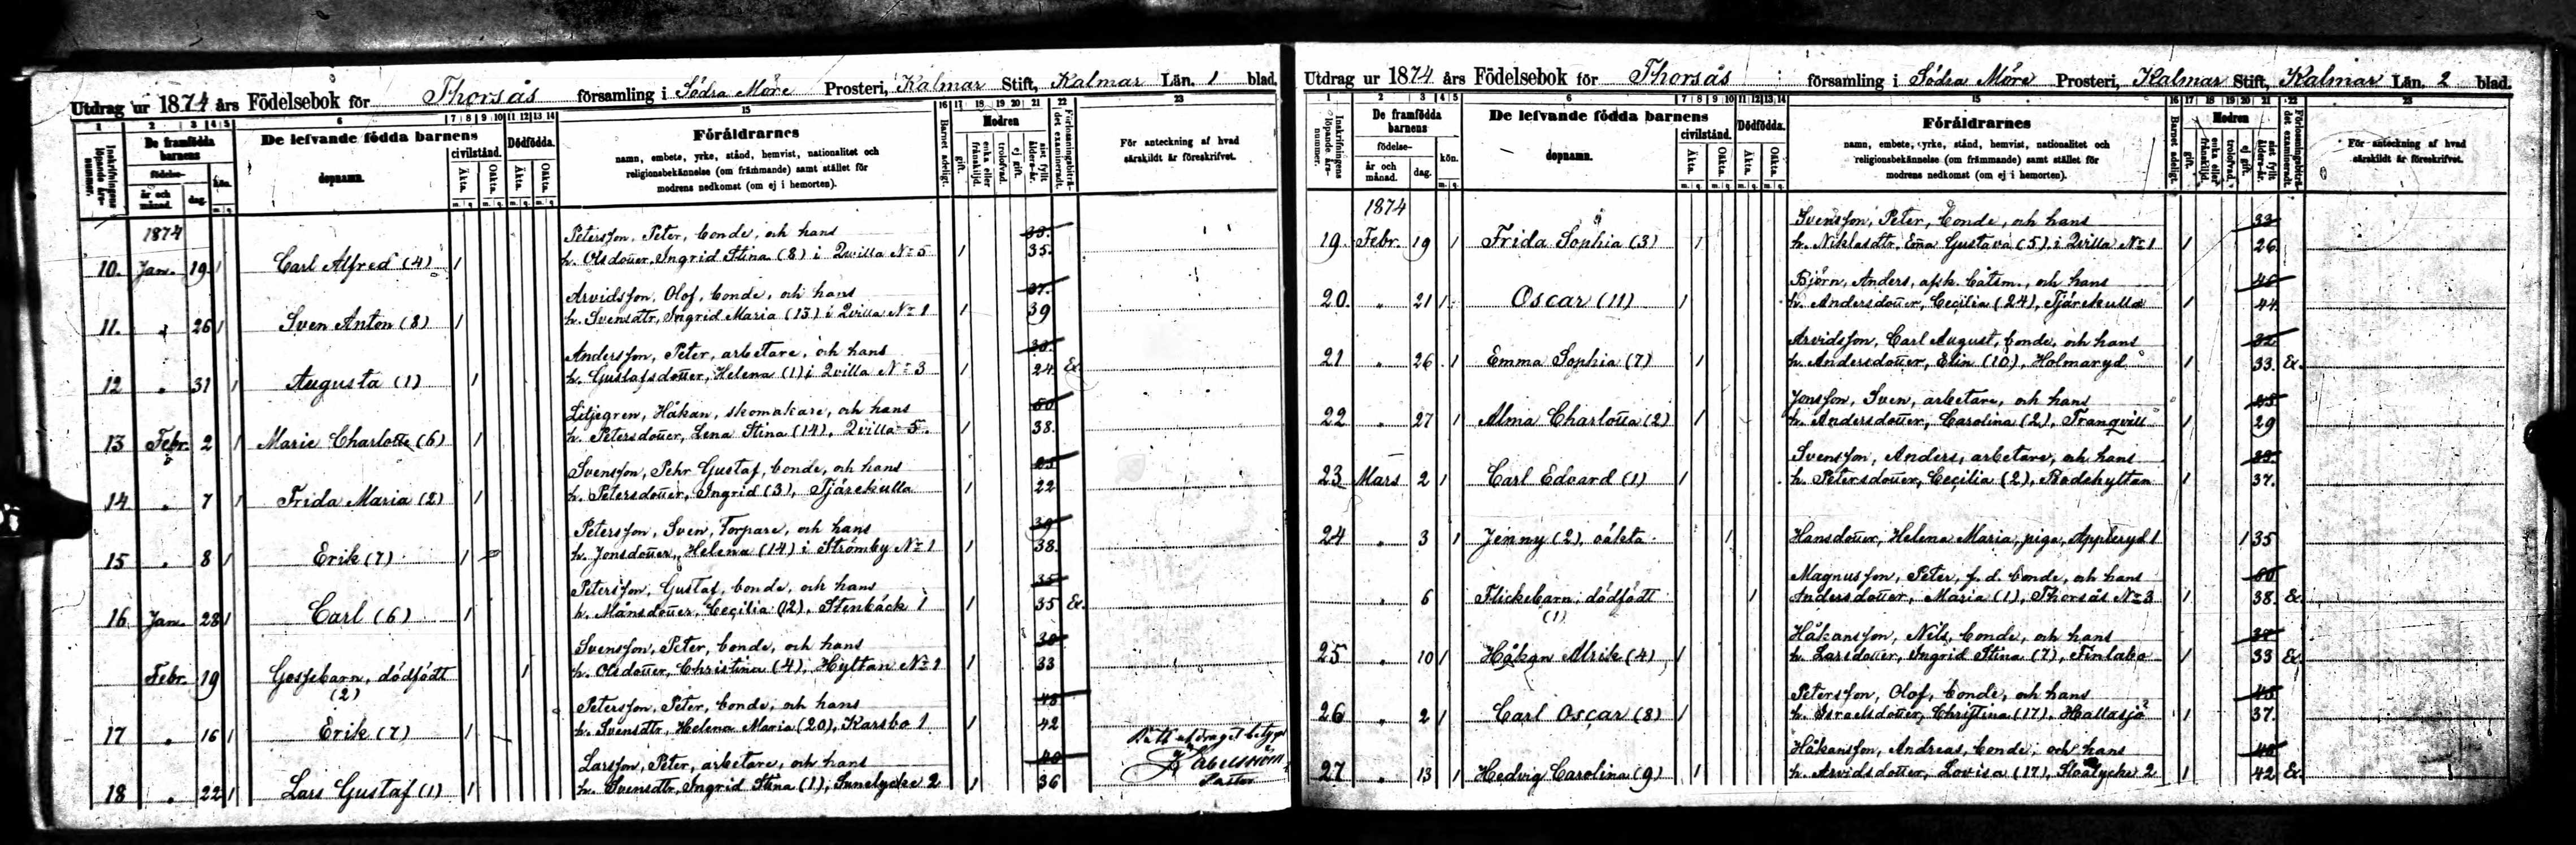 Utdrag ur 1874 års Födelsebok för Thorsås församling i Södra Möre Prosteri, Kalmar Stift, Kalmar Län. 1 blad.
1 2 3 4 5 6 7 8 9 10 11 12 13 14 15 16 17 18 19 20 21 22 23
Inskrifningens löpande års-nummer.
De framfödda barnens
födelse-
år och månad.
dag.
kön.
m. q.
De lefvande födda barnens
dopnamn.
civilstånd.
Äkta.
Oäkta.
Dödfödda.
Äkta.
Oäkta.
m. q. m. q. m. q. m. q.
Föräldrarnes
namn, embete, yrke, stånd, hemvist, nationalitet och
religionsbekännelse (om främmande) samt stället för
modrens nedkomst (om ej i hemorten).
Barnet adeligt.
Modren
gift.
enka eller frånskiljd.
trolofvad.
ej gift.
sist fyllt ålders-år.
Förlossningsbiträdet examineradt.
För anteckning af hvad
särskildt är föreskrifvet.
1874
Petersson, Peter, bonde, och hans
10. Jan. 19 1 Carl Alfred (4) 1 h. Olsdotter, Ingrid Stina (8) i Qvilla No 5 1 35.
Arvidsson, Olof, bonde, och hans 37.
11. " 26 1 Sven Anton (8) 1 h. Svensdtr, Ingrid Maria (13) i Qvilla No 1 1 39
Andersson, Peter, arbetare, och hans
12 " 31 1 Augusta (1) 1 h. Gustafsdotter, Helena (1) i Qvilla No 3 1 24 Ex.
Liljegren, Håkan, skomakare, och hans 50
13 Febr. 2 1 Marie Charlotte (6) 1 h. Petersdotter, Lena Stina (14), Qvilla 5. 1 38.
Svensson, Pehr Gustaf, bonde, och hans
14 " 7 1 Frida Maria (2) 1 h. Petersdotter, Ingrid (3), Tjärekulla 1 22
Petersson, Sven, Torpare, och hans 39
15 " 8 1 Erik (7) 1 h. Jonsdotter, Helena (14) i Strömby No 1 1 38.
Petersson, Gustaf, bonde, och hans 35
16 Jan. 28 1 Carl (6) 1 h. Månsdotter, Cecilia (12), Stenbäck 1 1 35 Ex.
Svensson, Peter, bonde, och hans
Febr. 19 Gossebarn, dödfödt 1 h. Olsdotter, Christina (4), Hyltan No 1 1 33
(2)
Petersson, Peter, bonde, och hans 48
17 " 16 1 Erik (7) 1 h. Svensdtr, Helena Maria (20), Karsbo 1 1 42
Larsson, Peter, arbetare, och hans 40
18 " 22 1 Lars Gustaf (1) 1 h. Svensdtr, Ingrid Stina (1), Sunelycke 2 1 36
Rätt utdraget betygar
Pastor
Utdrag ur 1874 års Födelsebok för Thorsås församling i Södra Möre Prosteri, Kalmar Stift, Kalmar Län. 2 blad.
1 2 3 4 5 6 7 8 9 10 11 12 13 14 15 16 17 18 19 20 21 22 23
Inskrifningens löpande års-nummer.
De framfödda barnens
födelse-
år och månad.
dag.
kön.
m. q.
De lefvande födda barnens
dopnamn.
civilstånd.
Äkta.
Oäkta.
Dödfödda.
Äkta.
Oäkta.
m. q. m. q. m. q. m. q.
Föräldrarnes
namn, embete, yrke, stånd, hemvist, nationalitet och
religionsbekännelse (om främmande) samt stället för
modrens nedkomst (om ej i hemorten).
Barnet adeligt.
Modren
gift.
enka eller frånskiljd.
trolofvad.
ej gift.
sist fyllt ålders-år.
Förlossningsbiträdet examineradt.
För anteckning af hvad
särskildt är föreskrifvet.
1874
Svensson, Peter, bonde, och hans 33
19. Febr. 19 1 Frida Sophia (3) 1 h. Niklasdtr, Ema Gustava (5) i Qvilla No 1 1 26
Björn, Anders, afsk. båtsm., och hans
20. " 21 1 Oscar (11) 1 h. Andersdotter, Cecilia (24), Tjärekulla 1 44.
Arvidsson, Carl August, bonde, och hans 32
21 " 26 1 Emma Sophia (7) 1 h. Andersdotter, Elin (10), Holmaryd 1 33. Ex.
Jonsson, Sven, arbetare, och hans
22 " 27 1 Alma Charlotta (2) 1 h. Andersdotter, Carolina (2), Tranqvill 1 29
Svensson, Anders, arbetare, och hans
23 Mars 2 1 Carl Edvard (1) 1 h. Petersdotter, Cecilia (2), Rodehyltan 1 37.
24 " 3 1 Jenny (2), oäkta 1 Hansdotter, Helena Maria, piga, Appleryd 1 1 35
Magnusson, Peter, f. d. bonde, och hans
" 6 Flickebarn, dödfödt 1 Andersdotter, Maria (1), Thorsås No 3 1 38. Ex.
(1)
Håkansson, Nils, bonde, och hans
25 " 10 1 Håkan Alrik (4) 1 h. Larsdotter, Ingrid Stina (7), Finlabo 1 33 Ex.
Petersson, Olof, bonde, och hans
26 " 2 1 Carl Oscar (8) 1 h. Israelsdotter, Christina (17), Hallasjö 1 37.
Håkansson, Andreas, bonde, och hans
27 " 13 1 Hedvig Carolina (9) 1 h. Arvidsdotter, Lovisa (17), 2 1 42 Ex.